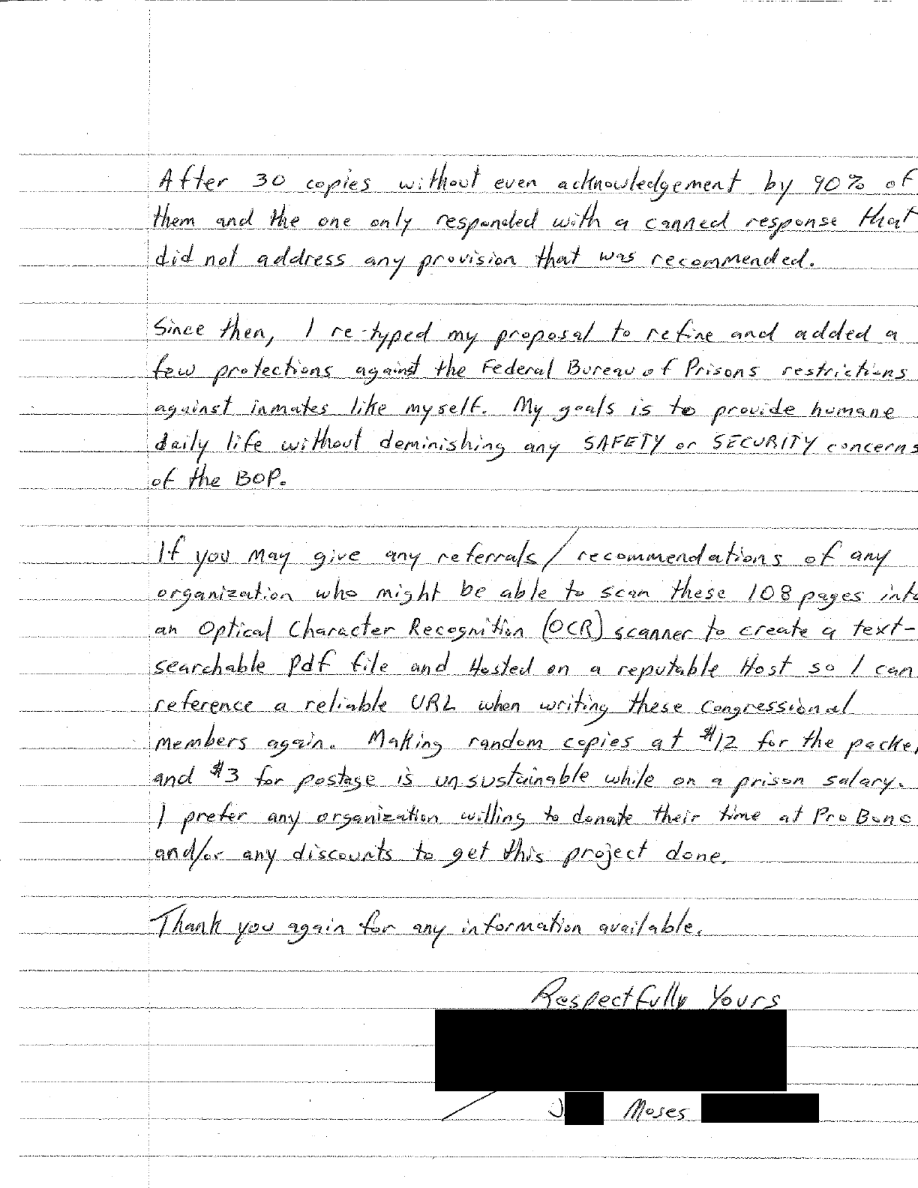 After 30 copies without even acknowledgement by 90% of
them and the one only responded with a canned response that
did not address any provision that was recommended.
Since then, I re-typed my proposal to refine and added a
few protections against the Federal Bureau of Prisons restrictions
against inmates like myself. My goals is to provide humane
daily life without deminishing any SAFETY or SECURITY concerns
of the BOP.
If you may give any referrals/recommendations of any
organization who might be able to scan these 108 pages into
an Optical Character Recognition (OCR) scanner to create a text-
searchable Pdf file and Hosted on a reputable Host so I can
reference a reliable URL when writing these Congressional
members again. Making random copies at $12 for the packe
and $3 for postage is unsustainable while on a prison salary.
I prefer any organization willing to donate their time at Pro Bono
and/or any discounts to get this project done.
Thank you again for any information available.
Respectfully Yours
J Moses